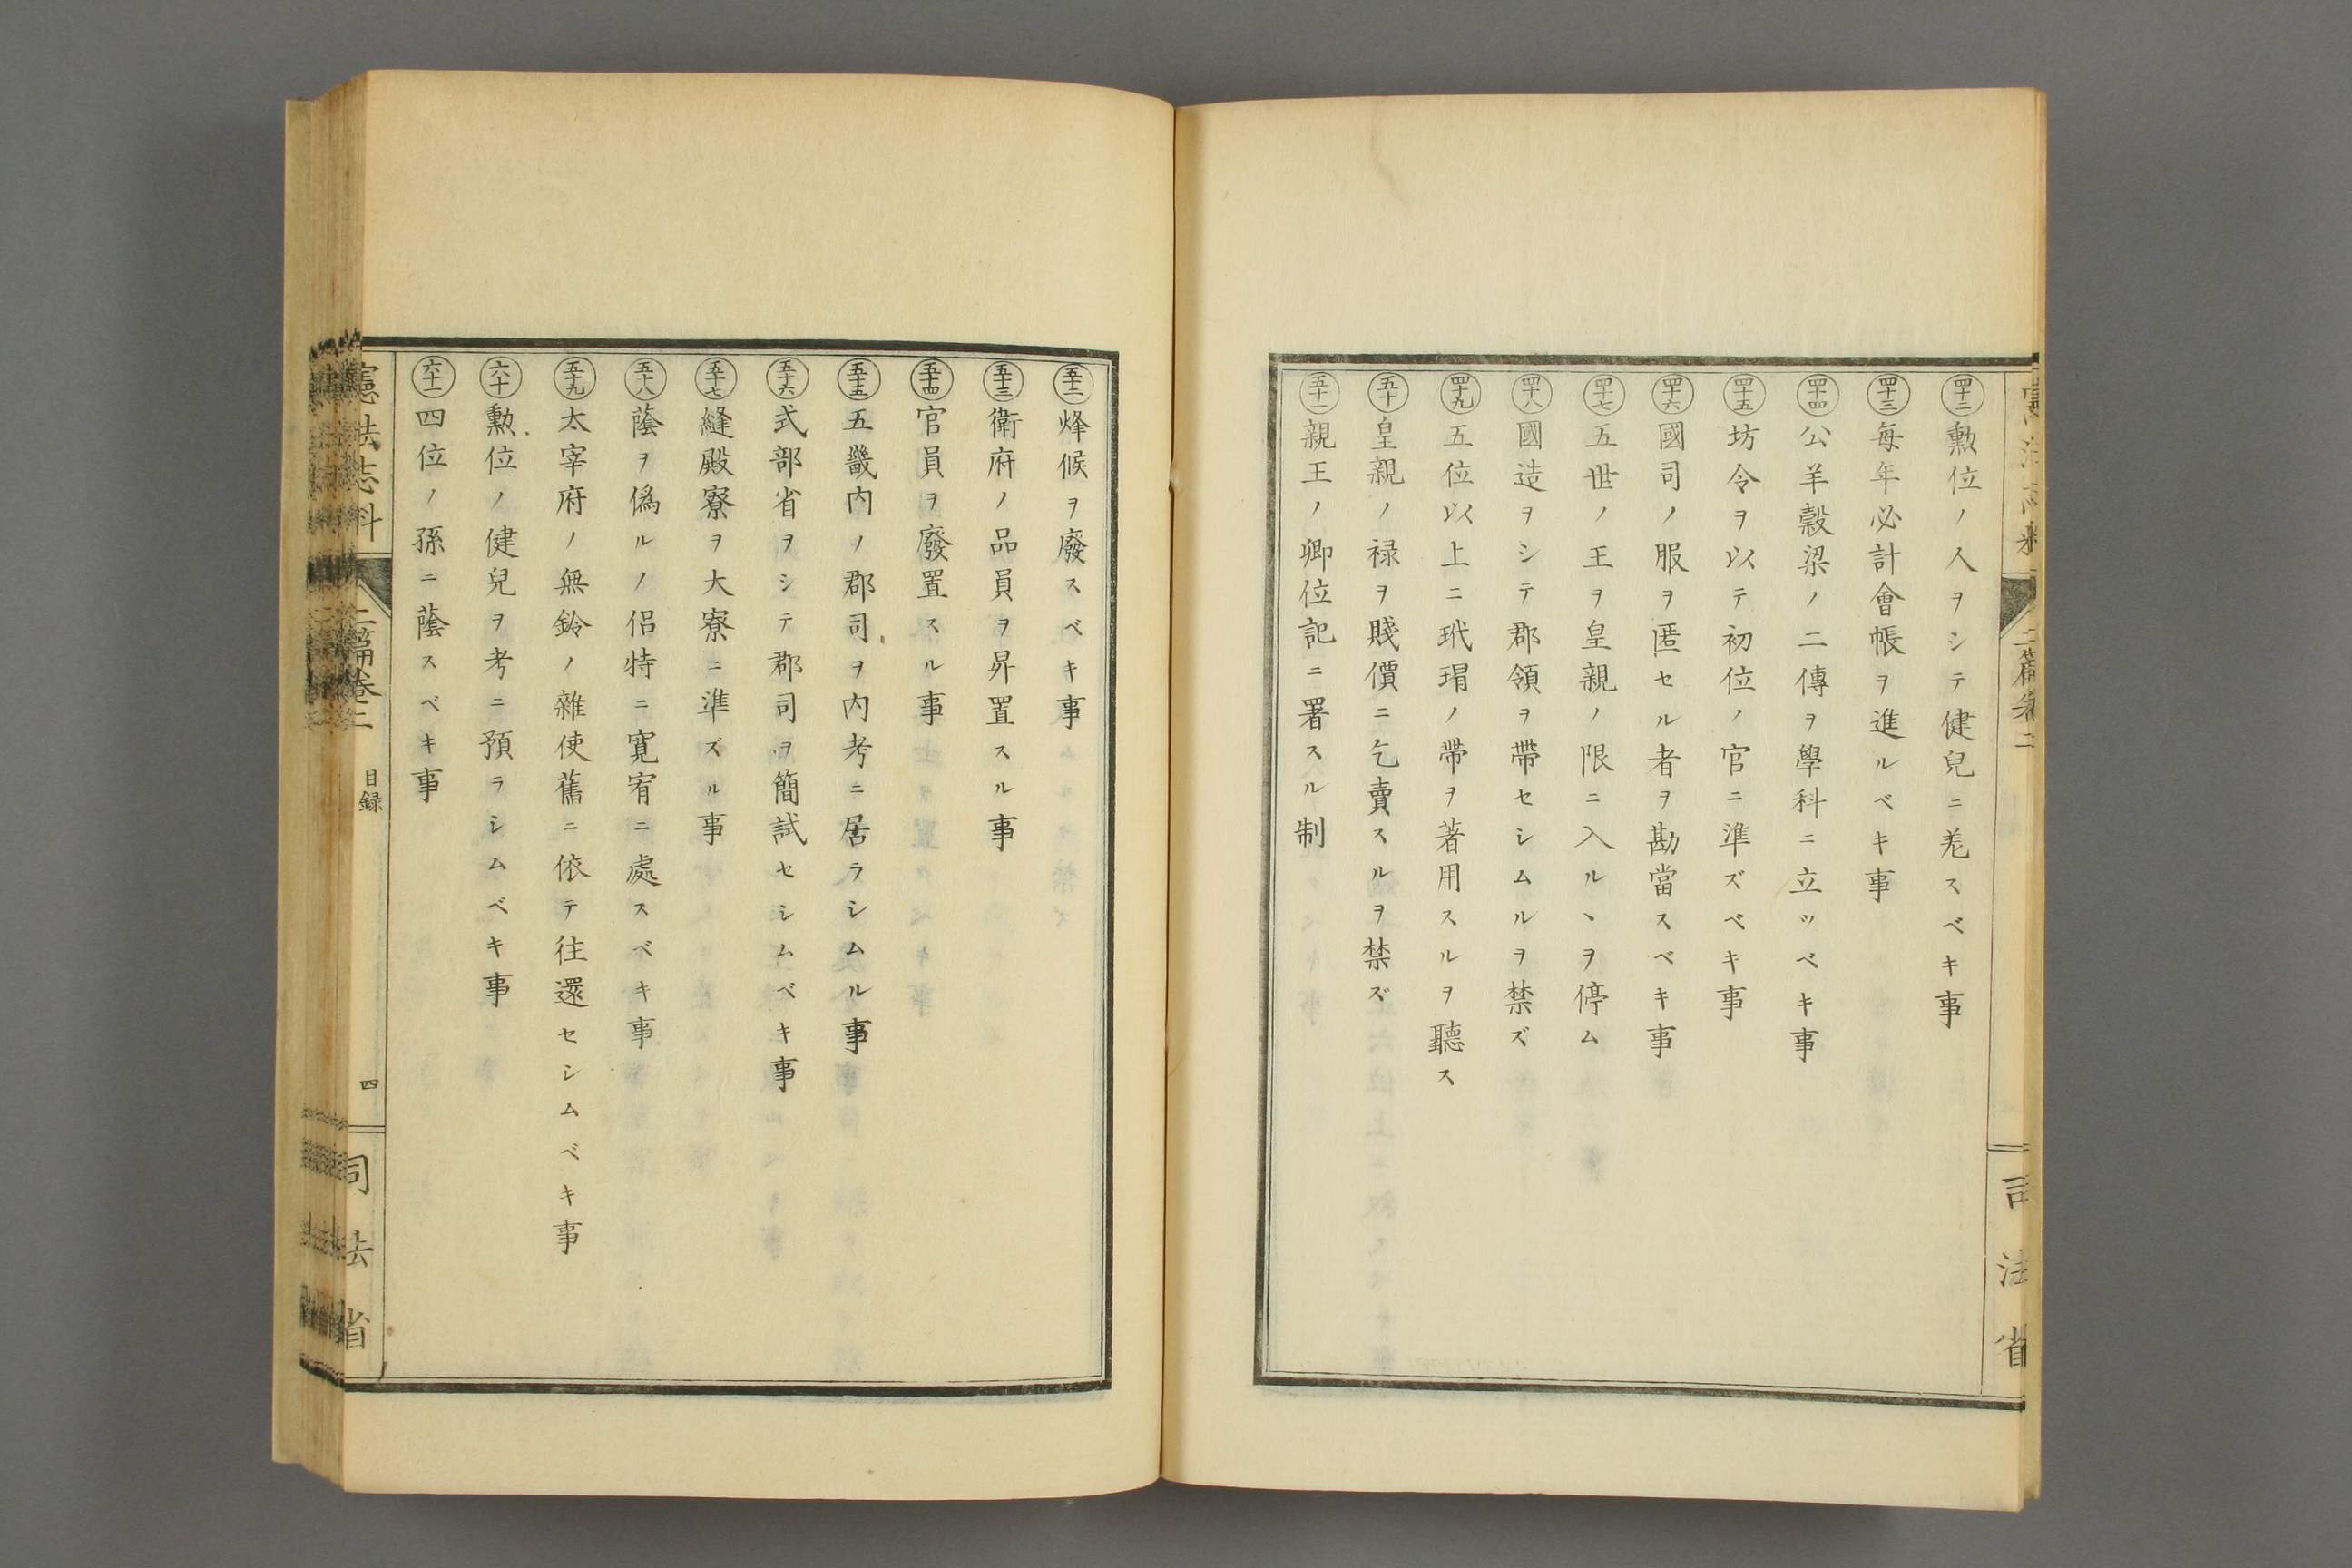 四十二 勲位ノ人ヲシテ健兒ニ差スベキ事
四十三 每年必計會帳ヲ進ルベキ事
四十四 公羊穀梁ノ二傳ヲ學科ニ立ツベキ事
四十五 坊令ヲ以テ初位ノ官ニ準ズベキ事
四十六 國司ノ服ヲ匿セル者ヲ勘當スベキ事
四十七 五世ノ王ヲ皇親ノ限ニ入ルヽヲ停ム
四十八 國造ヲシテ郡領ヲ帶セシムルヲ禁ズ
四十九 五位以上ニ玳瑁ノ帶ヲ著用スルヲ聽ス
五十 皇親ノ禄ヲ賤價ニ乞賣スルヲ禁ズ
五十一 親王ノ卿位記ニ署スル制
五十二 烽候ヲ廢スベキ事
五十三 衛府ノ品員ヲ昇置スル事
五十四 官員ヲ廢置スル事
五十五 五畿内ノ郡司ヲ内考ニ居ラシムル事
五十六 式部省ヲシテ郡司ヲ簡試セシムベキ事
五十七 縫殿寮ヲ大寮ニ準ズル事
五十八 蔭ヲ僞ルノ侶特ニ寛宥ニ處スベキ事
五十九 太宰府ノ無鈴ノ雜使舊ニ依テ往還セシムベキ事
六十 勲位ノ健兒ヲ考ニ預ラシムベキ事
六十一 四位ノ孫ニ蔭スベキ事
憲法志料 二篇卷二 目録 四 司法省